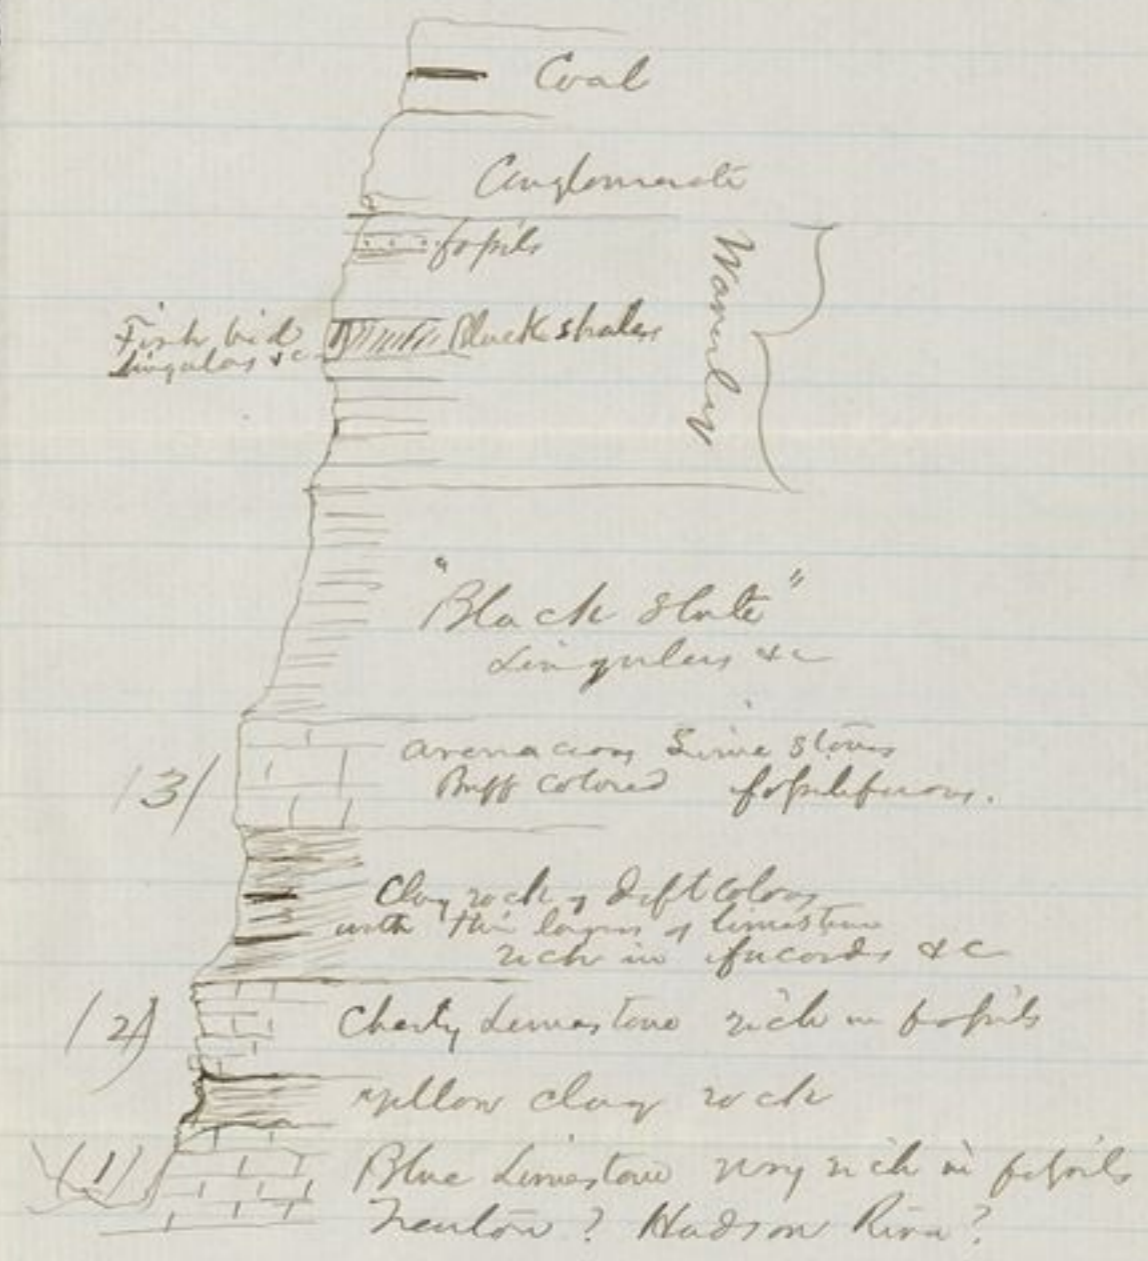 Coal
Conglomerate
fossils
Waverley
Fish bed
Lingulas &c
Black shales
"Black Slate"
Lingulas &c
arenaceous Lime stones
(3)
Buff colored fossiliferous.
Clay rock of diff t colors
with thin layers of limestone
rich in fucoids &c
(2)
Cherty Limestone rich in fossils
yellow clay rock
(1)
Blue Limestone very rich in fossils
Trenton? Hudson River?